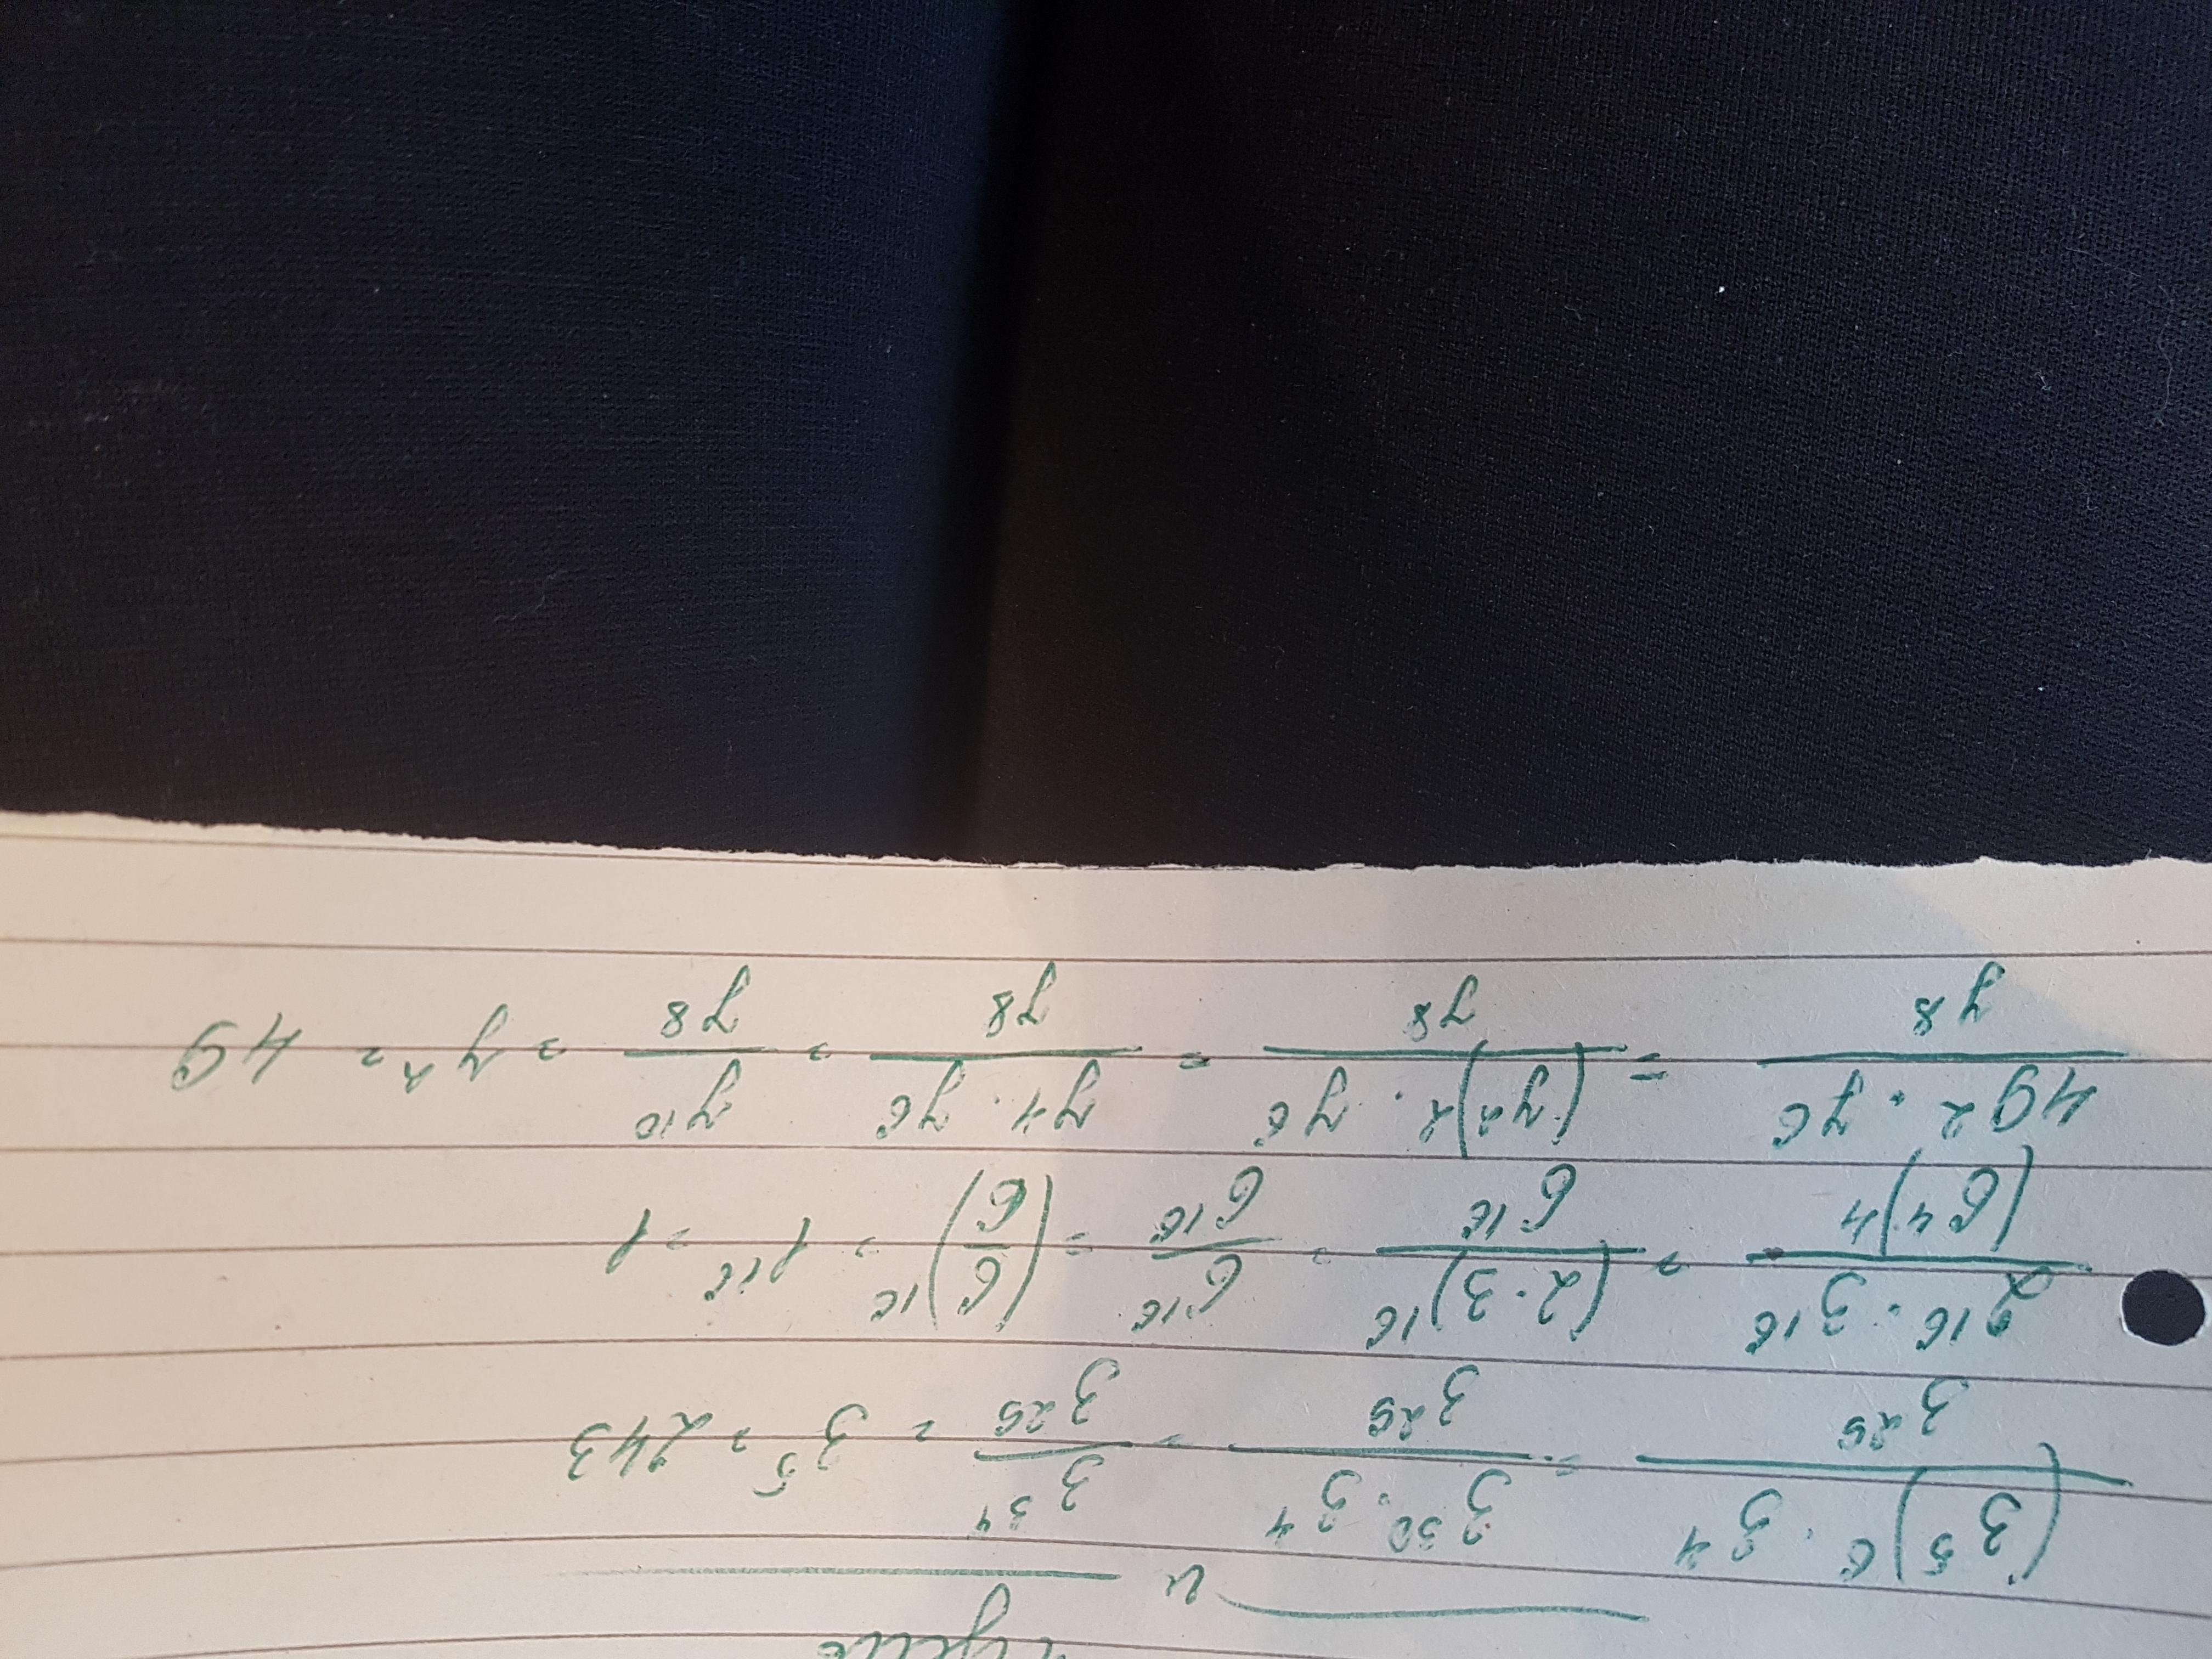 (3⁵)⁶ · 3⁴ / 3²⁹ = 3³⁰ · 3⁴ / 3²⁹ = 3³⁴ / 3²⁹ = 3⁵ = 243
2¹⁶ · 3¹⁶ / (6⁴)⁴ = (2 · 3)¹⁶ / 6¹⁶ = 6¹⁶ / 6¹⁶ = (6/6)¹⁶ = 1¹⁶ = 1
49² · 7⁶ / 7⁸ = (7²)² · 7⁶ / 7⁸ = 7⁴ · 7⁶ / 7⁸ = 7¹⁰ / 7⁸ = 7² = 49